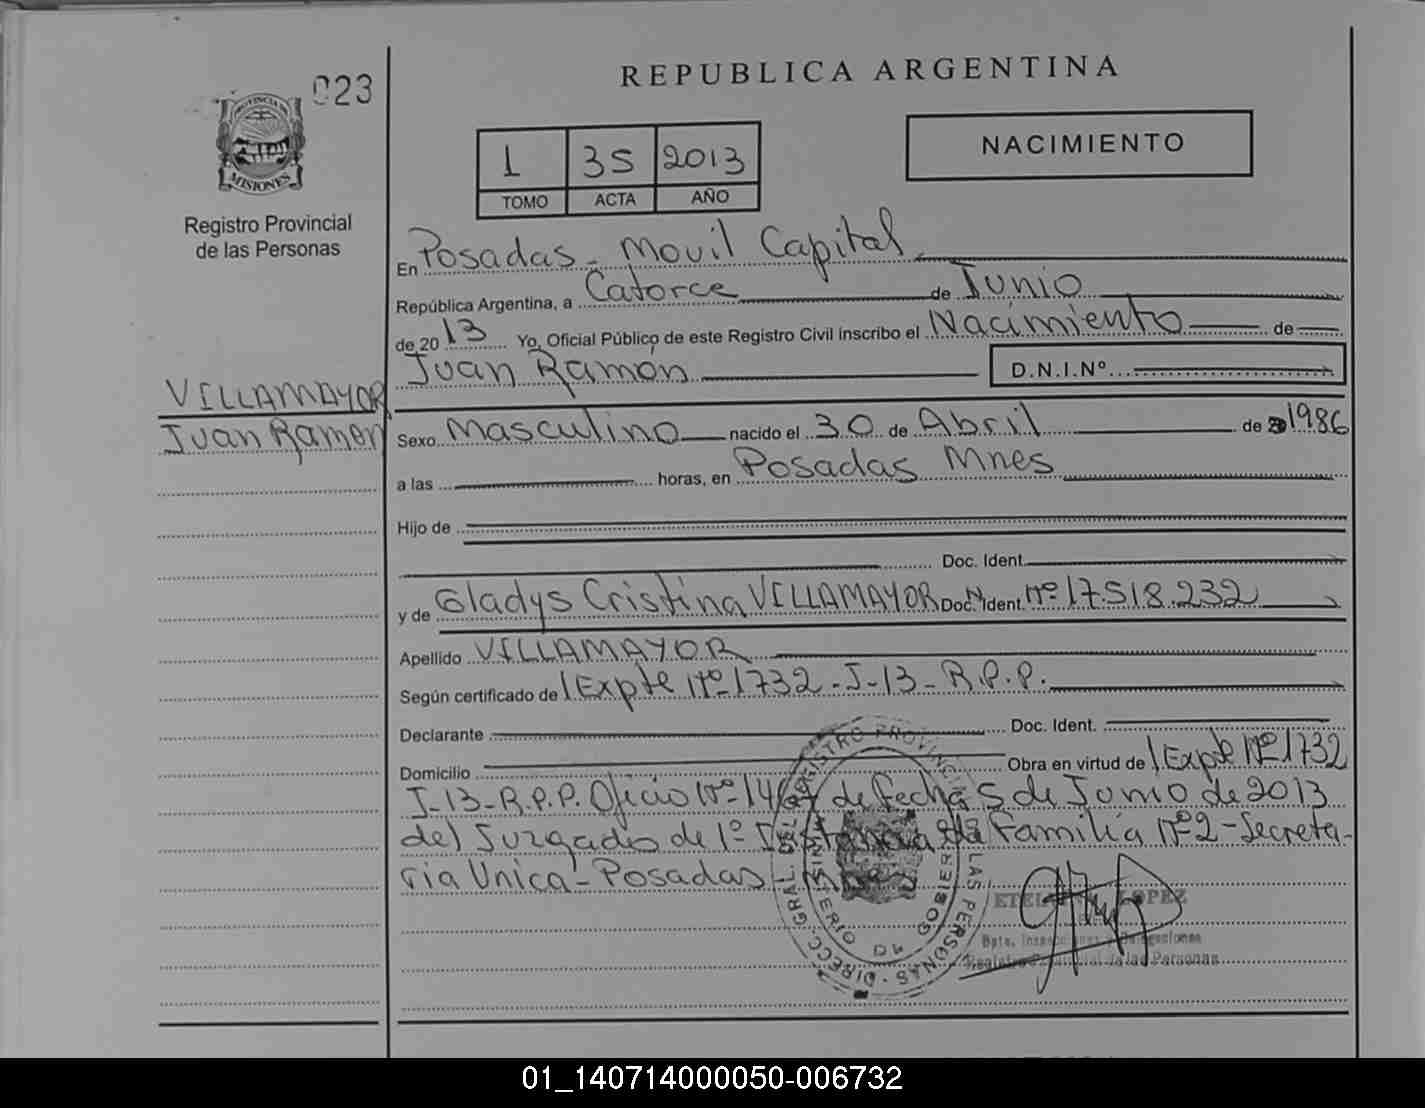 023
REPUBLICA ARGENTINA
PROVINCIA DE
MISIONES
Registro Provincial
de las Personas
1 35 2013
TOMO ACTA AÑO
NACIMIENTO
En Posadas - Movil Capital
República Argentina, a Catorce de Junio
de 20 13 Yo, Oficial Público de este Registro Civil inscribo el Nacimiento de
Juan Ramón D.N.I.Nº
VILLAMAYOR
Juan Ramon
Sexo Masculino nacido el 30 de Abril de 1986
a las horas, en Posadas Mnes
Hijo de
Doc. Ident.
y de Gladys Cristina VILLAMAYOR Doc. Ident. Nº 17518.232
Apellido VILLAMAYOR
Según certificado de Expte Nº 1732-J-13-R.P.P.
Declarante Doc. Ident.
Domicilio Obra en virtud de Expte Nº 1732
J-13-R.P.P. Oficio Nº de fecha 5 de Junio de 2013
del Juzgado de 1º Instancia de Familia Nº 2-Secreta-
ria Unica-Posadas-Mnes
DIRECC. GRAL. DEL REGISTRO PROVINCIAL DE LAS PERSONAS
MINISTERIO DE GOBIERNO
LOPEZ
Dpto. Inspecciones y Delegaciones
Registro Provincial de las Personas
01_140714000050-006732